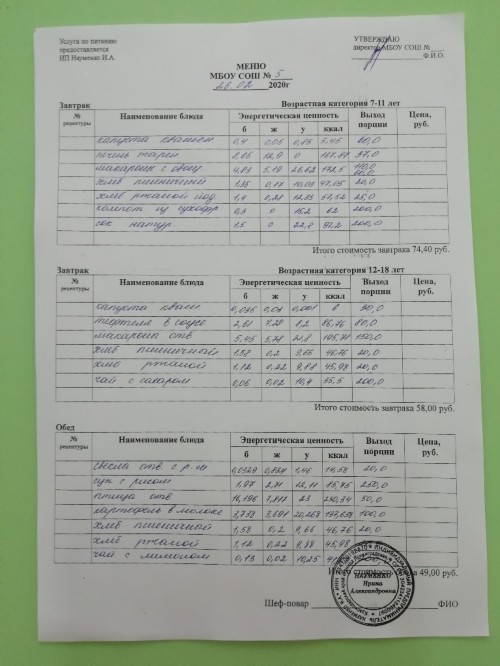 Услуга по питанию УТВЕРЖДАЮ
предоставляется директор МБОУ СОШ №
ИП Науменко И.А. Ф.И.О.
МЕНЮ
МБОУ СОШ № 5
26.02 2020г
Завтрак Возрастная категория 7-11 лет
№ рецептуры Наименование блюда Энергетическая ценность Выход порции Цена, руб.
б ж у ккал
капуста квашен 0,4 0,05 5,45 60,0
печень жарен 12,9 0
макароны с овощ 4,83 5,18 26,62
хлеб пшеничный 1,35 0,17 10,03 47,05 20,0
хлеб ржаной йод. 1,4 0,28 12,35 57,52 25,0
компот из сухофр 0,3 0 15,2 62 200,0
сок натур. 1,5 0 22,8 97,2 200,0
Итого стоимость завтрака 74,40 руб.
Завтрак Возрастная категория 12-18 лет
№ рецептуры Наименование блюда Энергетическая ценность Выход порции Цена, руб.
б ж у ккал
капуста квашен 0,035 0,04 0,001 8 30,0
тефтеля в соусе 2,61 7,28 8,2 86,76 80,0
макароны отв 5,45 5,78 150,0
хлеб пшеничный 1,58 0,2 9,66 46,76 20,0
хлеб ржаной 1,12 0,22 9,88 45,98 20,0
чай с сахаром 0,06 0,02 10,4 55,5 200,0
Итого стоимость завтрака 58,00 руб.
Обед
№ рецептуры Наименование блюда Энергетическая ценность Выход порции Цена, руб.
б ж у ккал
свекла отв. с р. м 0,0329 1,46 14,58 20,0
суп с рисом 1,97 2,71 12,11 250,0
птица отв 16,196 7,817 23 240,34 50,0
картофель в молоке 3,733 3,691 20,268 100,0
хлеб пшеничный 1,58 0,2 9,66 46,76 20,0
хлеб ржаной 1,12 0,22 9,88 45,98
чай с лимоном 0,13 0,02 10,25
Итого стоимость 49,00 руб.
НАУМЕНКО
Ирина
Александровна
Шеф-повар ФИО